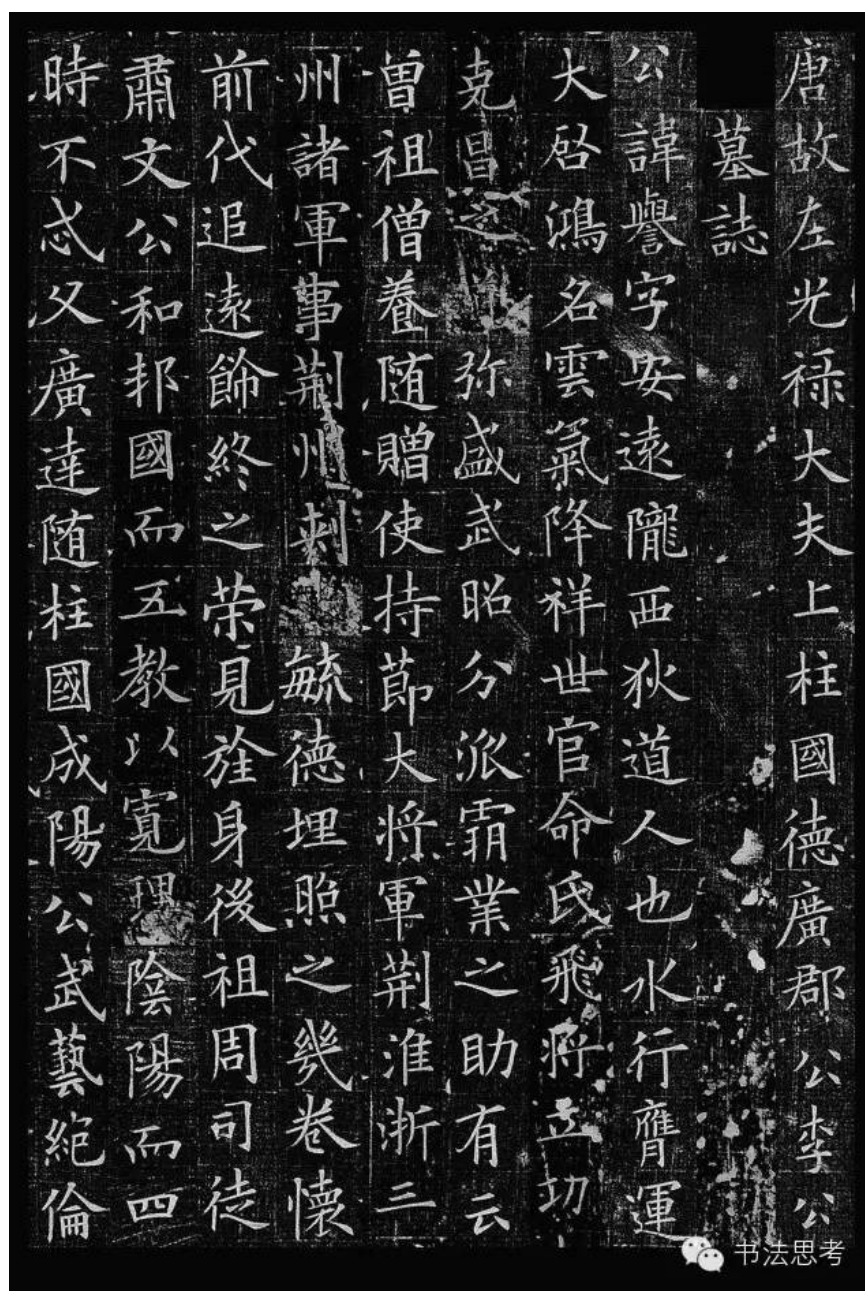 唐故左光禄大夫上柱國德廣郡公李公
墓誌
公諱譽字安遠隴西狄道人也水行膺運
大啓鴻名雲氣降祥世官命氏飛將立功
克昌之道弥盛武昭分派霸業之助有云
曽祖僧養随贈使持節大将軍荆淮浙三
州諸軍事荆州刺毓德埋照之幾卷懷
前代追遠飾終之荣見旌身後祖周司徒
肅文公和邦國而五教以寛理陰陽而四
時不忒父廣達随柱國成陽公武藝絶倫
书法思考